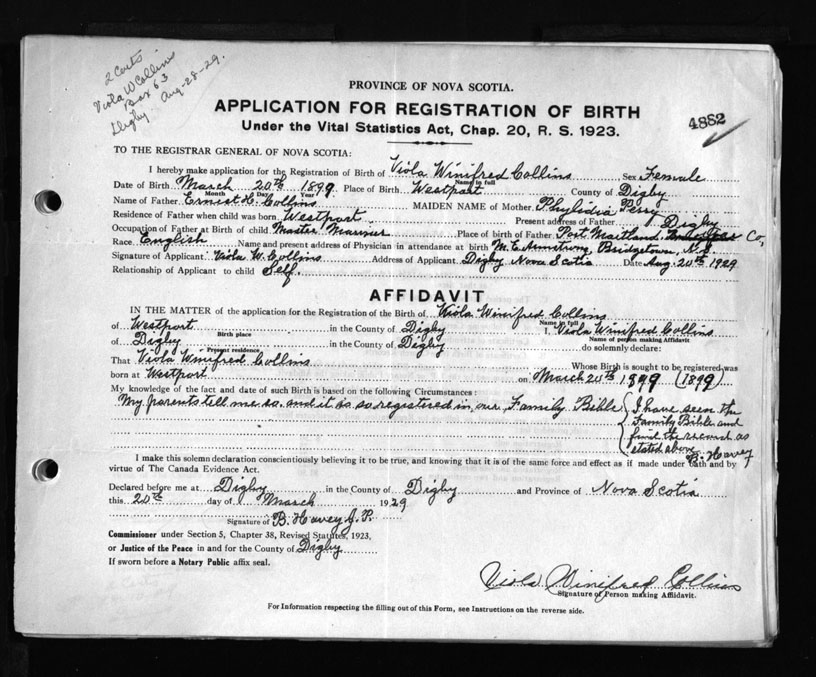 2 Certs
Viola W Collins
Box 63
Digby. Aug-28-29.
PROVINCE OF NOVA SCOTIA.
APPLICATION FOR REGISTRATION OF BIRTH
4882
Under the Vital Statistics Act, Chap. 20, R. S. 1923.
TO THE REGISTRAR GENERAL OF NOVA SCOTIA:
I hereby make application for the Registration of Birth of Viola Winifred Collins Sex Female
Name in full
Date of Birth March 20th 1899 Place of Birth Westport County of Digby
Month Day Year
Name of Father Ernest H. Collins MAIDEN NAME of Mother Phylidia Perry
Residence of Father when child was born Westport Present address of Father Digby
Occupation of Father at Birth of child Master Mariner Place of birth of Father Port Maitland, Co,
Race English Name and present address of Physician in attendance at birth M. E. Armstrong, Bridgetown, N.S.
Signature of Applicant Viola W. Collins Address of Applicant Digby Nova Scotia Date Aug. 20th 1929
Relationship of Applicant to child Self.
AFFIDAVIT
IN THE MATTER of the application for the Registration of the Birth of Viola Winifred Collins
Name in full
of Westport in the County of Digby I, Viola Winifred Collins
Birth place Name of person making Affidavit
of Digby in the County of Digby do solemnly declare:
Present residence
That Viola Winifred Collins Whose Birth is sought to be registered was
born at Westport on March 20th 1899 (1899)
My knowledge of the fact and date of such Birth is based on the following Circumstances:
My parents tell me so. and it is so registered in our Family Bible
I have seen the
Family Bible and
find the record as
stated above
B. Havey
I make this solemn declaration conscientiously believing it to be true, and knowing that it is of the same force and effect as if made under oath and by
virtue of The Canada Evidence Act.
Declared before me at Digby in the County of Digby and Province of Nova Scotia
this 20th day of March 1929
Signature of B. Havey J. P.
Commissioner under Section 5, Chapter 38, Revised Statutes, 1923,
or Justice of the Peace in and for the County of Digby
If sworn before a Notary Public affix seal.
Viola Winifred Collins
Signature of Person making Affidavit.
For Information respecting the filling out of this Form, see Instructions on the reverse side.